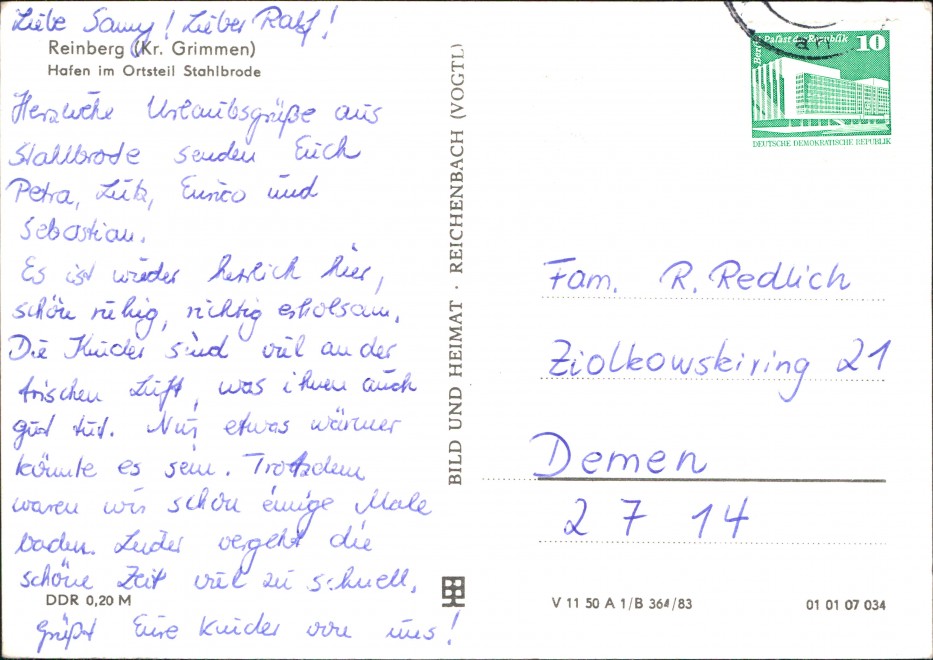 Liebe Samy! Lieber Ralf!
Reinberg (Kr. Grimmen)
Hafen im Ortsteil Stahlbrode
Herzliche Urlaubsgrüße aus
Stahlbrode senden Euch
Petra, Lutz, Enrico und
Sebastian.
Es ist wieder herrlich hier,
schön ruhig, richtig erholsam.
Die Kinder sind viel an der
frischen Luft, was ihnen auch
gut tut. Nur etwas wärmer
könnte es sein. Trotzdem
waren wir schon einige Male
baden. Leider vergeht die
schöne Zeit viel zu schnell.
DDR 0,20 M
Grüßt Eure Kinder von uns!
BILD UND HEIMAT · REICHENBACH (VOGTL)
an
Berlin Palast der Republik 10
DEUTSCHE DEMOKRATISCHE REPUBLIK
Fam. R. Redlich
Ziolkowskiring 21
Demen
2714
V 11 50 A 1/B 364/83
01 01 07 034